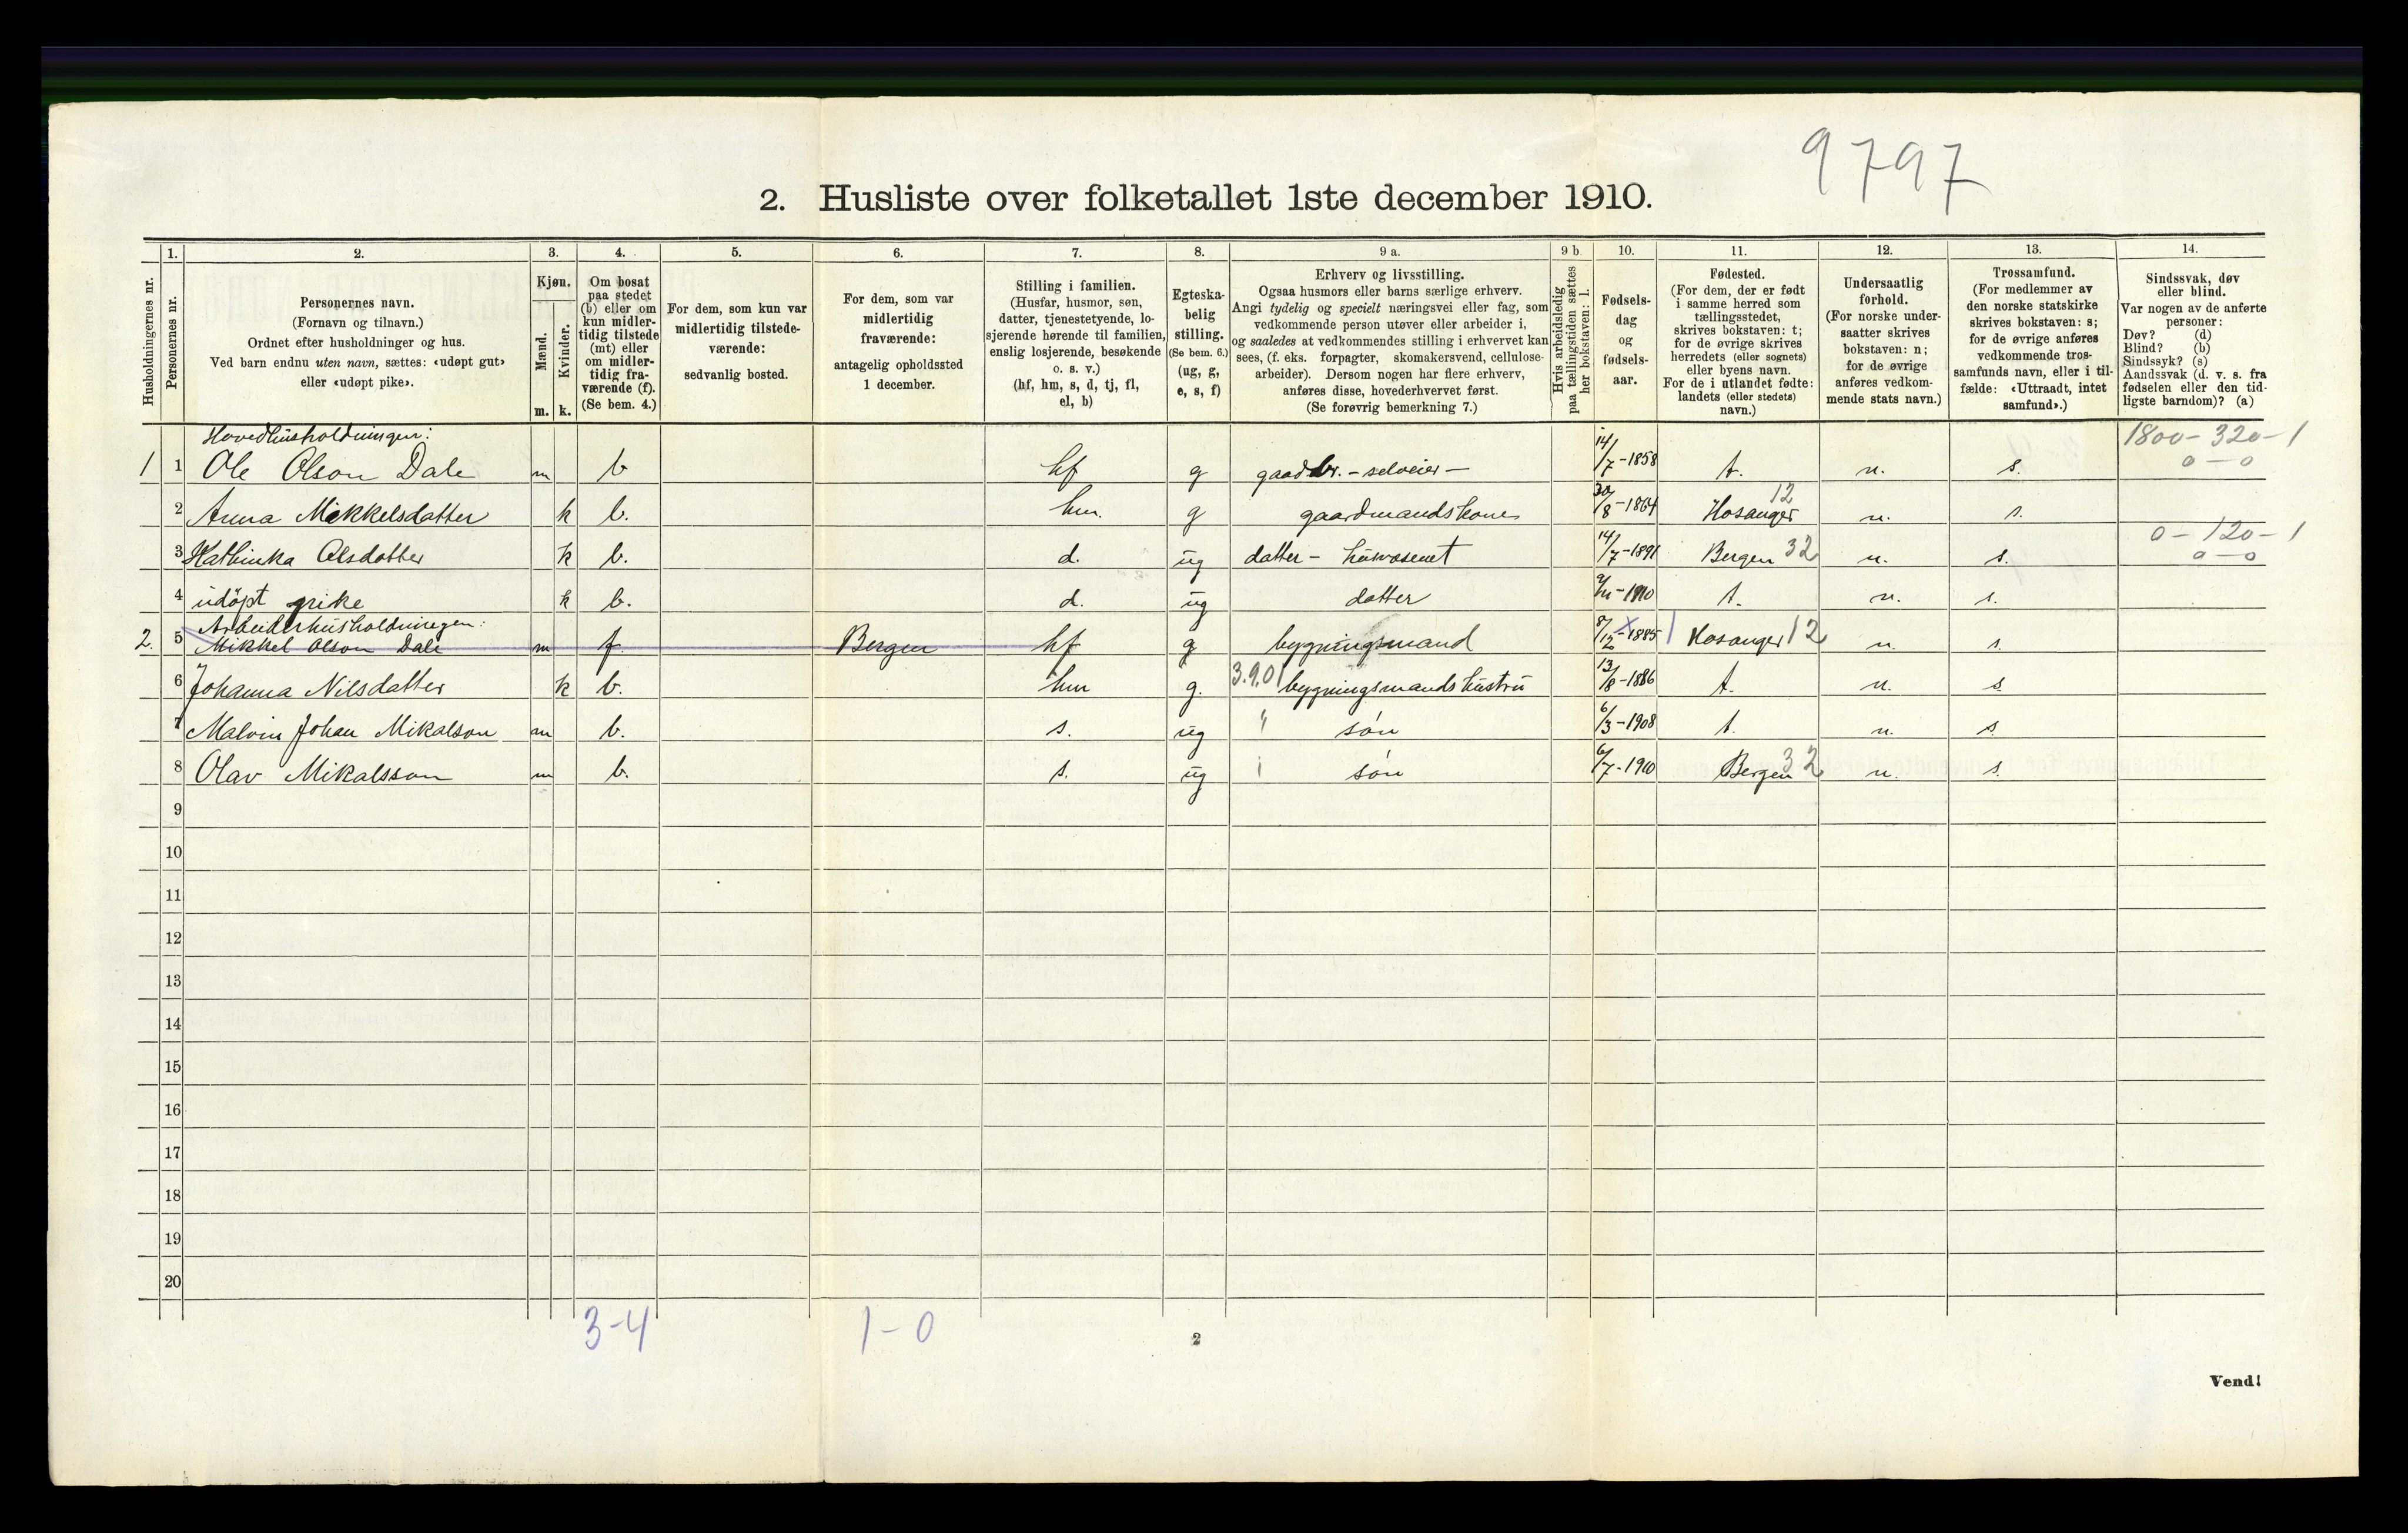 9797
2. Husliste over folketallet 1ste december 1910.
Husholdningernes nr.
1.
Personernes nr.
2.
Personernes navn.
(Fornavn og tilnavn.)
Ordnet efter husholdninger og hus.
Ved barn endnu uten navn, sættes: «udøpt gut»
eller «udøpt pike».
3.
Kjøn.
Mænd.
Kvinder.
m. k.
4.
Om bosat
paa stedet
(b) eller om
kun midler-
tidig tilstede
(mt) eller
om midler-
tidig fra-
værende (f).
(Se bem. 4.)
5.
For dem, som kun var
midlertidig tilstede-
værende:
sedvanlig bosted.
6.
For dem, som var
midlertidig
fraværende:
antagelig opholdssted
1 december.
7.
Stilling i familien.
(Husfar, husmor, søn,
datter, tjenestetyende, lo-
sjerende hørende til familien,
enslig losjerende, besøkende
o. s. v.)
(hf, hm, s, d, tj, fl,
el, b)
8.
Egteska-
belig
stilling.
(Se bem. 6.)
(ug, g,
e, s, f)
9 a.
Erhverv og livsstilling.
Ogsaa husmors eller barns særlige erhverv.
Angi tydelig og specielt næringsvei eller fag, som
vedkommende person utøver eller arbeider i,
og saaledes at vedkommendes stilling i erhvervet kan
sees, (f. eks. forpagter, skomakersvend, cellulose-
arbeider). Dersom nogen har flere erhverv,
anføres disse, hovederhvervet først.
(Se forøvrig bemerkning 7.)
9 b
Hvis arbeidsledig
paa tællingstiden sættes
her bokstaven: l.
10.
Fødsels-
dag
og
fødsels-
aar.
11.
Fødested.
(For dem, der er født
i samme herred som
tællingsstedet,
skrives bokstaven: t;
for de øvrige skrives
herredets (eller sognets)
eller byens navn.
For de i utlandet fødte:
landets (eller stedets)
navn.)
12.
Undersaatlig
forhold.
(For norske under-
saatter skrives
bokstaven: n;
for de øvrige
anføres vedkom-
mende stats navn.)
13.
Trossamfund.
(For medlemmer av
den norske statskirke
skrives bokstaven: s;
for de øvrige anføres
vedkommende tros-
samfunds navn, eller i til-
fælde: «Uttraadt, intet
samfund».)
14.
Sindssvak, døv
eller blind.
Var nogen av de anførte
personer:
Døv? (d)
Blind? (b)
Sindssyk? (s)
Aandssvak (d. v. s. fra
fødselen eller den tid-
ligste barndom)? (a)
Hovedhusholdningen:
1 1 Ole Olson Dale m b hf g gaadbr. - selveier - 14/7-1858 t. n. s. 1800-320-1
0-0
2 Anna Mekkelsdatter k b. hm. g gaardmandskone 30/8-1864 Hosanger 12 n. s.
3 Kathinka Olsdatter k b. d. ug datter - 14/7-1891 Bergen 32 n. s. 0-120-1
0-0
4 udöpt pike k b. d. ug datter 9/11-1910 t. n. s.
Arbeiderhusholdningen:
2. 5 Mikkel Olson Dale m f Bergen hf g bygningsmand 8/12-1885 Hosanger 12 n. s.
6 Johanna Nilsdatter k b. hm g. 3.9.01 bygningsmands hustru 13/8-1886 t. n. s.
7 Malvin Johan Mikalson m b. s. ug " søn 6/3-1908 t. n. s.
8 Olav Mikalsson m b. s. ug søn 6/7-1910 Bergen 32 n. s.
9
10
11
12
13
14
15
16
17
18
19
20
3-4 1-0
2
Vend!